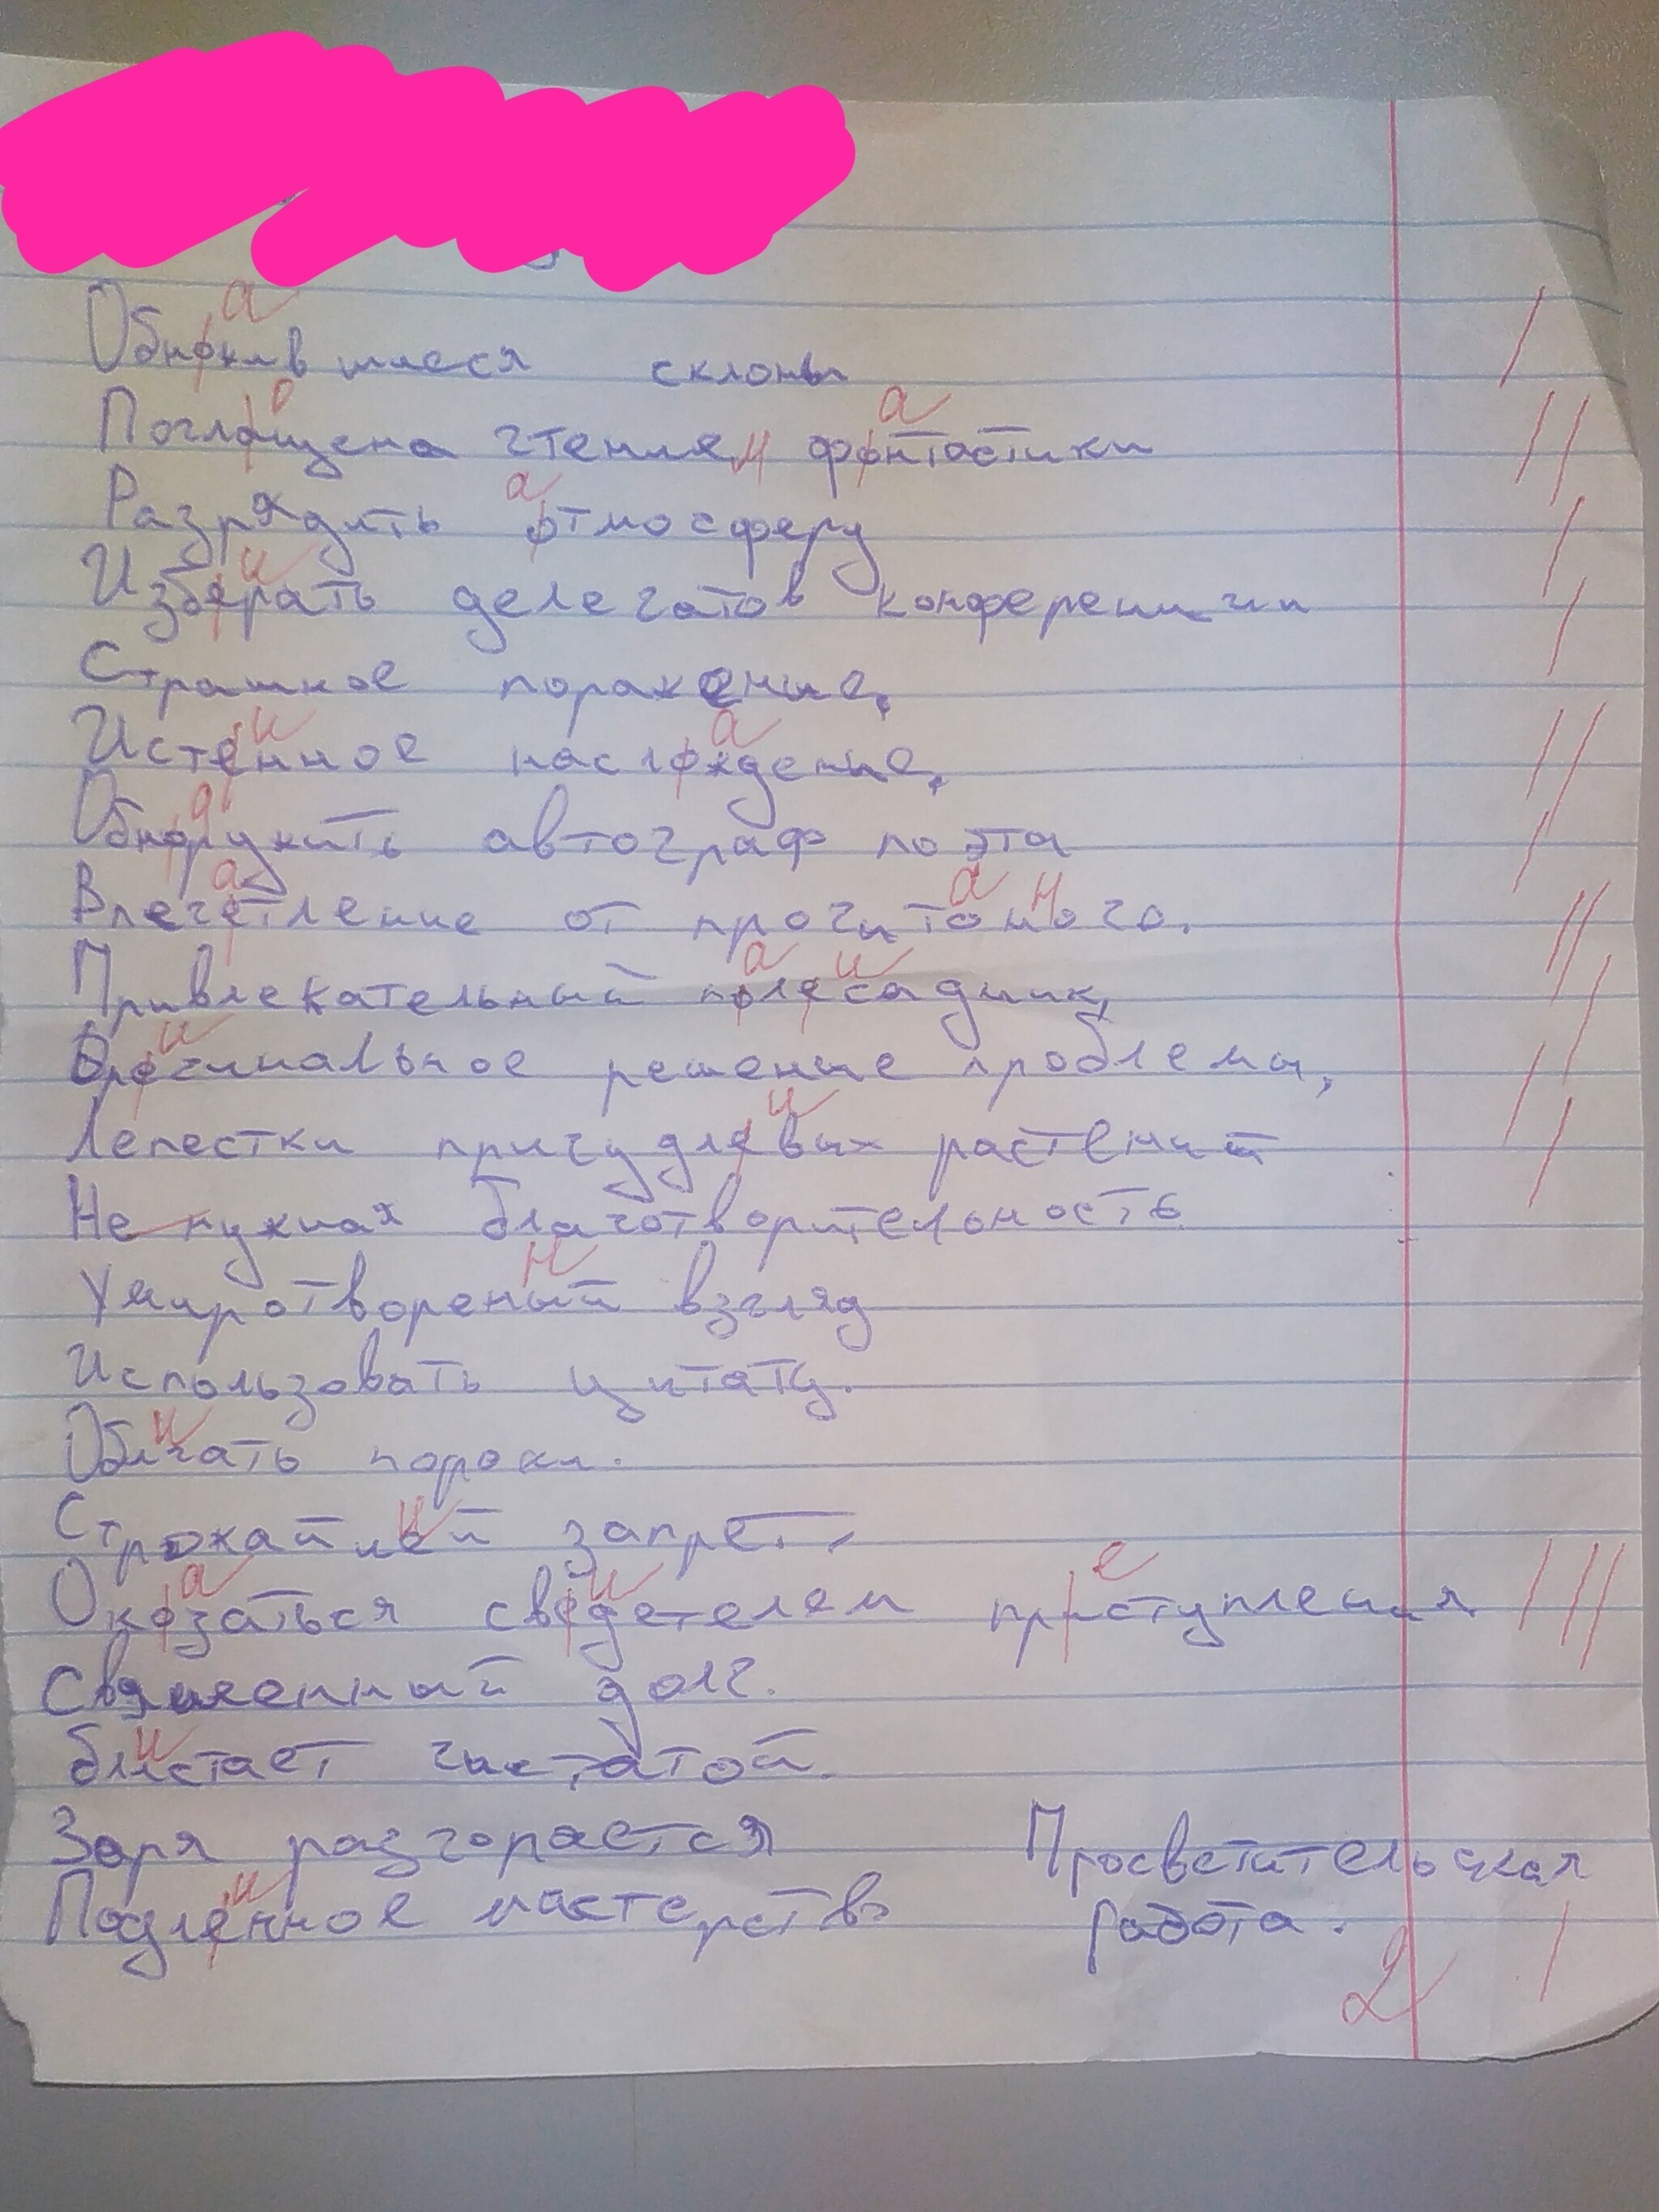 Обножившиеся склоны
Поглащена чтением фонтастики
Разрядить отмосферу
Изберать делегатов конференции
Страшное поражение,
Истенное наслождение,
Обноружить автограф поэта
Впечетление от прочитоного.
Привлекательный полесадник,
Орегинальное решение проблемы,
Лепестки причудлевых растений
Не нужная благотворительность
Умиротвореный взгляд
Использовать цитату.
Обличать пороки.
Строжайший запрет.
Окозаться сведетелем приступления
Священный долг.
блистает чистатой.
Заря разгорается
Просветительская
Подленное мастерство
работа.
2